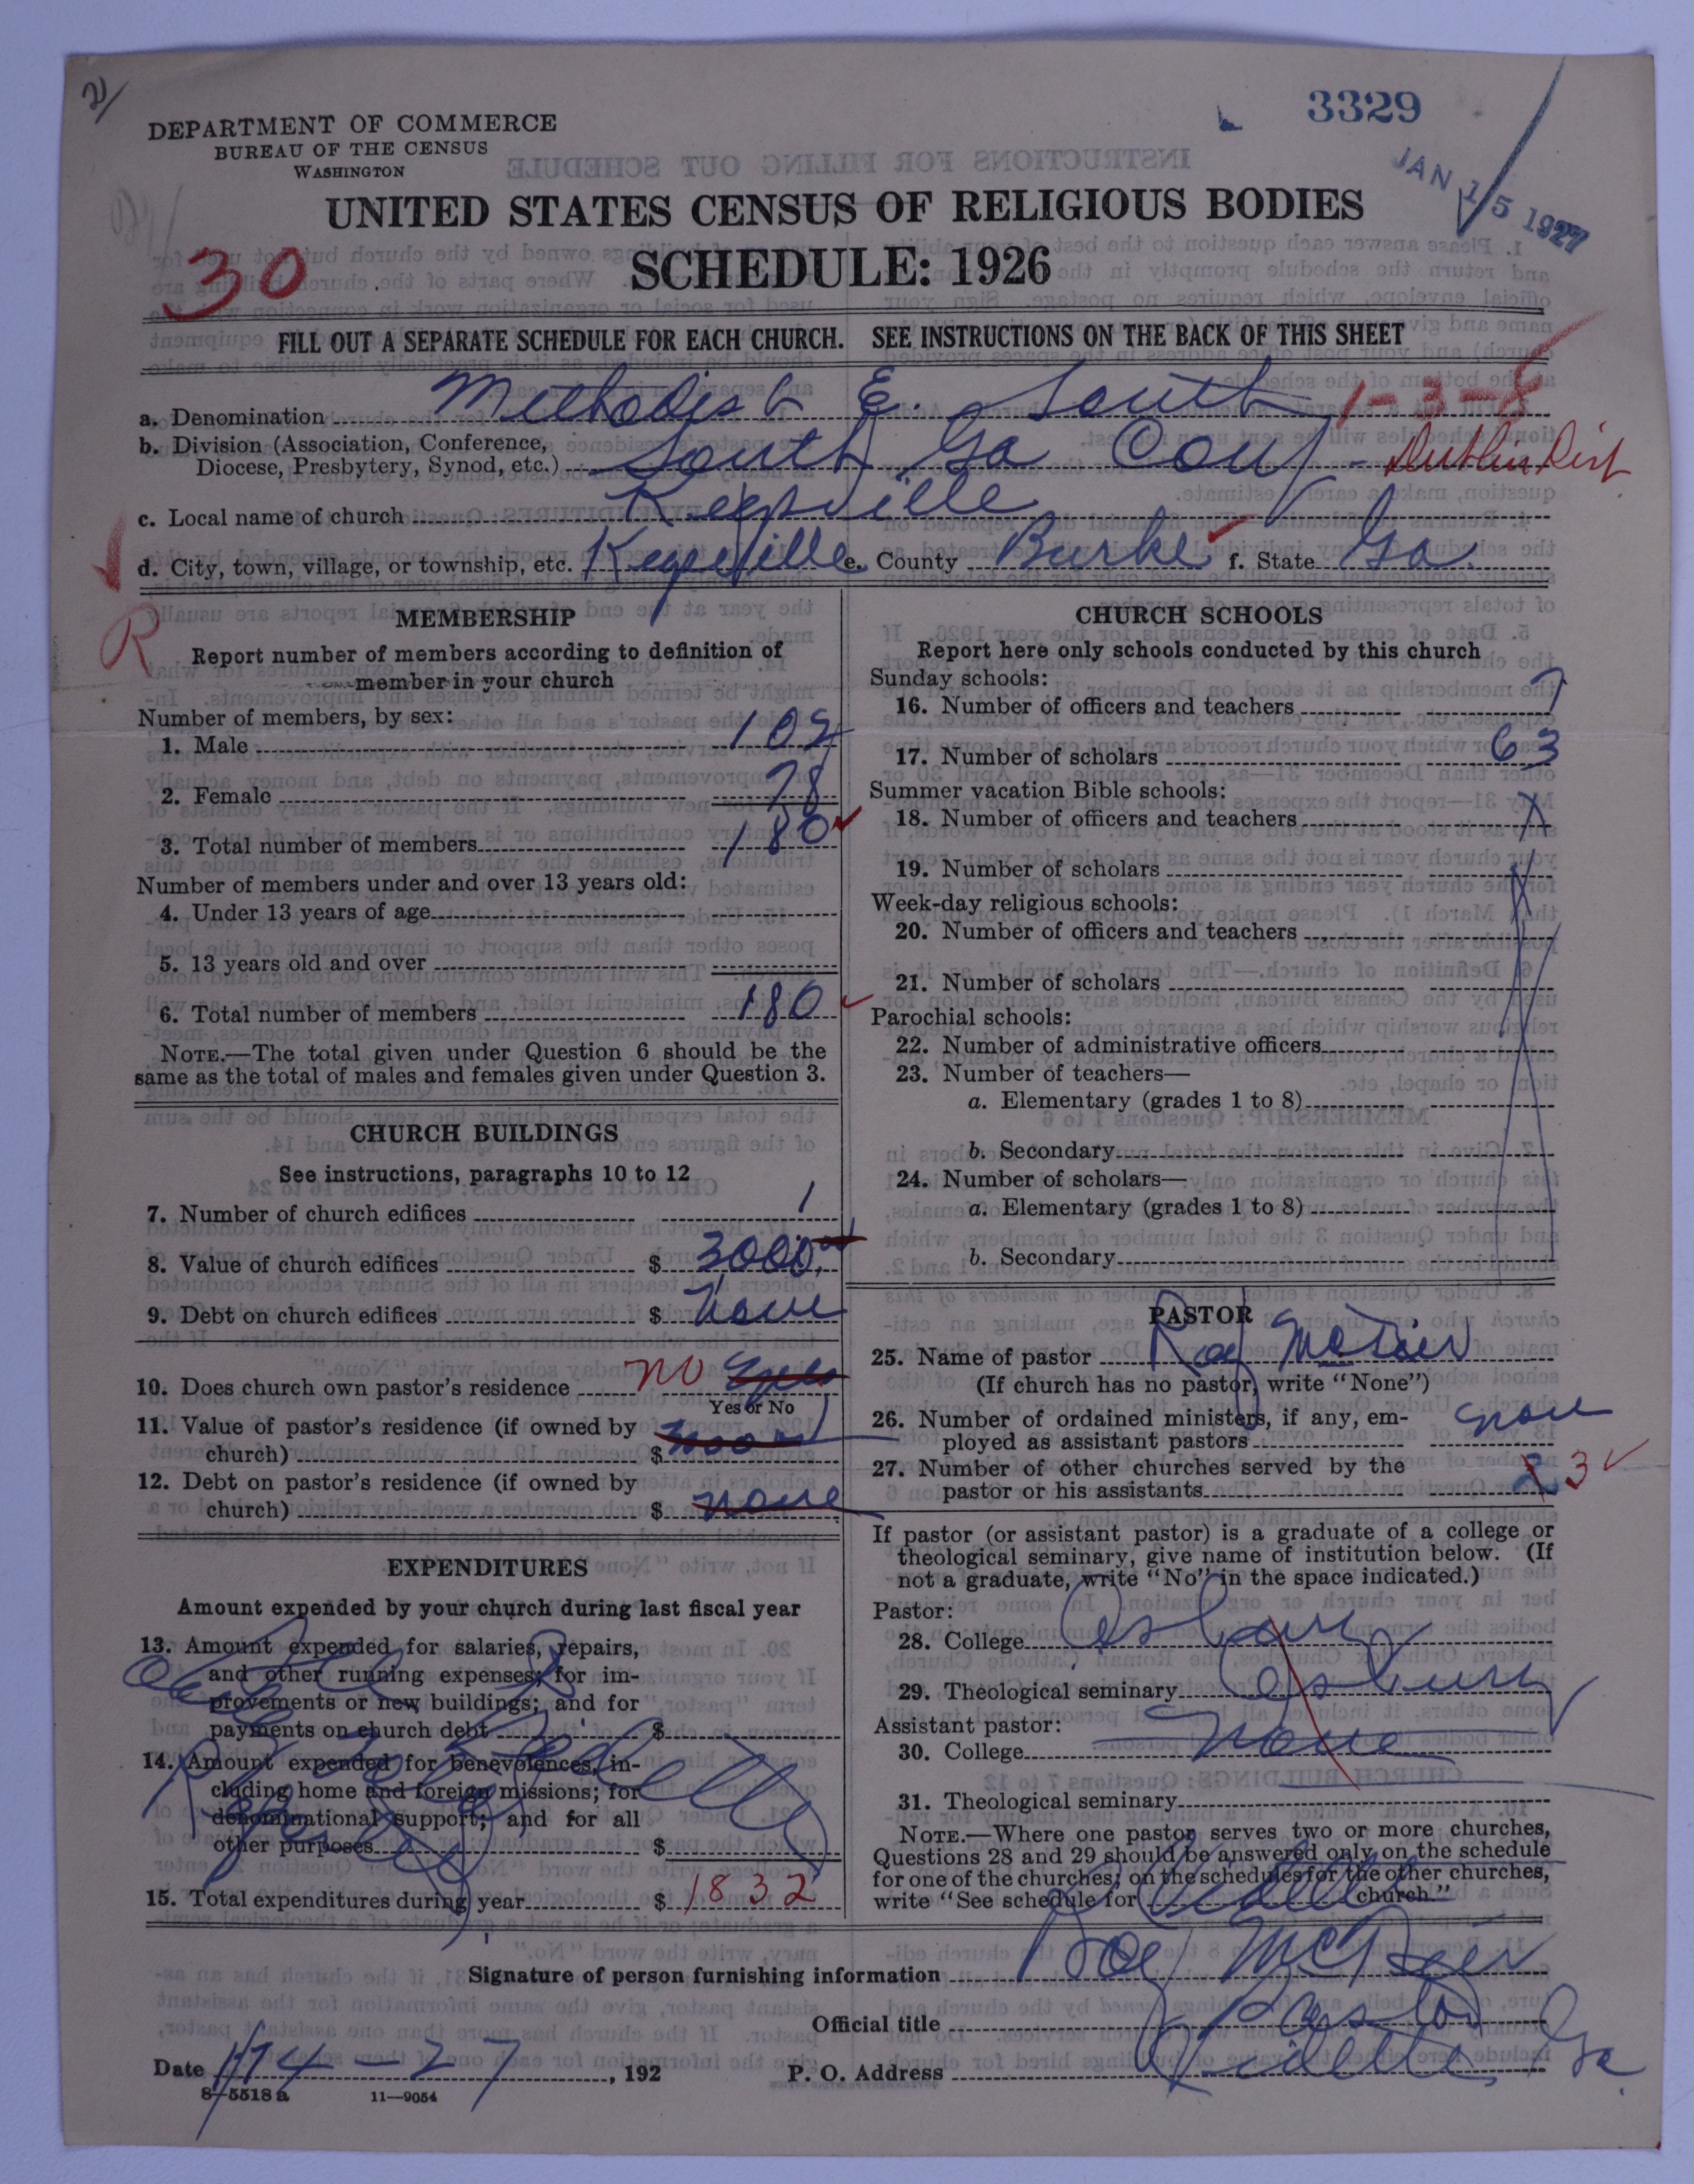 3329
JAN 15 1927
DEPARTMENT OF COMMERCE
BUREAU OF THE CENSUS
WASHINGTON
UNITED STATES CENSUS OF RELIGIOUS BODIES
SCHEDULE: 1926
30
FILL OUT A SEPARATE SCHEDULE FOR EACH CHURCH. SEE INSTRUCTIONS ON THE BACK OF THIS SHEET
a. Denomination Methodist E. South 1-3-8
b. Division (Association, Conference,
Diocese, Presbytery, Synod, etc.) South Ga Conf - Dublin Dist
c. Local name of church Keysville
d. City, town, village, or township, etc. Keysville e. County Burke f. State Ga.
R
MEMBERSHIP
Report number of members according to definition of
member in your church
Number of members, by sex:
1. Male 102
2. Female 78
3. Total number of members 180
Number of members under and over 13 years old:
4. Under 13 years of age
5. 13 years old and over
6. Total number of members 180
NOTE.—The total given under Question 6 should be the
same as the total of males and females given under Question 3.
CHURCH BUILDINGS
See instructions, paragraphs 10 to 12
7. Number of church edifices 1
8. Value of church edifices $ 3000
9. Debt on church edifices $ None
10. Does church own pastor's residence no
Yes or No
11. Value of pastor's residence (if owned by
church) $
12. Debt on pastor's residence (if owned by
church) $ none
EXPENDITURES
Amount expended by your church during last fiscal year
13. Amount expended for salaries, repairs,
and other running expenses; for im-
provements or new buildings; and for
payments on church debt $
14. Amount expended for benevolences, in-
cluding home and foreign missions; for
denominational support; and for all
other purposes $
15. Total expenditures during year $ 1832
CHURCH SCHOOLS
Report here only schools conducted by this church
Sunday schools:
16. Number of officers and teachers 7
17. Number of scholars 63
Summer vacation Bible schools:
18. Number of officers and teachers X
19. Number of scholars
Week-day religious schools:
20. Number of officers and teachers
21. Number of scholars
Parochial schools:
22. Number of administrative officers
23. Number of teachers—
a. Elementary (grades 1 to 8)
b. Secondary
24. Number of scholars—
a. Elementary (grades 1 to 8)
b. Secondary
PASTOR
25. Name of pastor Roy
(If church has no pastor, write "None")
26. Number of ordained ministers, if any, em-
ployed as assistant pastors none
27. Number of other churches served by the
pastor or his assistants 2 3
If pastor (or assistant pastor) is a graduate of a college or
theological seminary, give name of institution below. (If
not a graduate, write "No" in the space indicated.)
Pastor:
28. College Asbury
29. Theological seminary Asbury
Assistant pastor:
30. College None
31. Theological seminary
NOTE.—Where one pastor serves two or more churches,
Questions 28 and 29 should be answered only on the schedule
for one of the churches; on the schedules for the other churches,
write "See schedule for church."
Signature of person furnishing information Roy
Official title Pastor
Date 1/14-27, 192 P. O. Address Vidette, Ga.
8—5518 a 11—9054